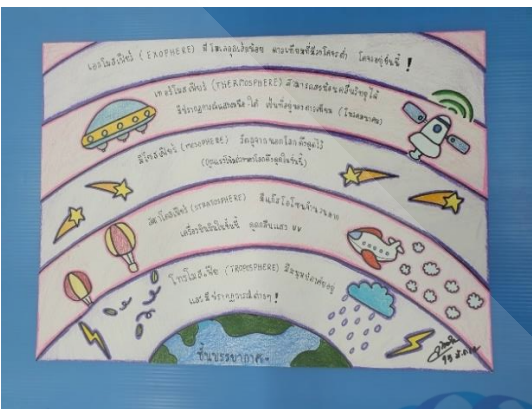 เอกโซสเฟียร์ (EXOPHERE) มีโมเลกุลเล็กน้อย ดาวเทียมที่มีวงโคจรต่ำ โคจรอยู่ชั้นนี้ !
เทอร์โมสเฟียร์ (THERMOSPHERE) สามารถสะท้อนคลื่นวิทยุได้
มีปรากฏการณ์แสงเหนือ-ใต้ เป็นที่อยู่ของดาวเทียม (โทรคมนาคม)
มีโซสเฟียร์ (MESOSPHERE) วัตถุจากนอกโลกดึงดูดไว้
สตราโตสเฟียร์ (STRATOSPHERE) มีแก๊สโอโซนจำนวนมาก
เครื่องบินบินในชั้นนี้ ดูดกลืนแสง UV
โทรโพสเฟีย (TROPOSPHERE) มีมนุษย์อาศัยอยู่
และมีปรากฏการณ์ต่างๆ !
ชั้นบรรยากาศ